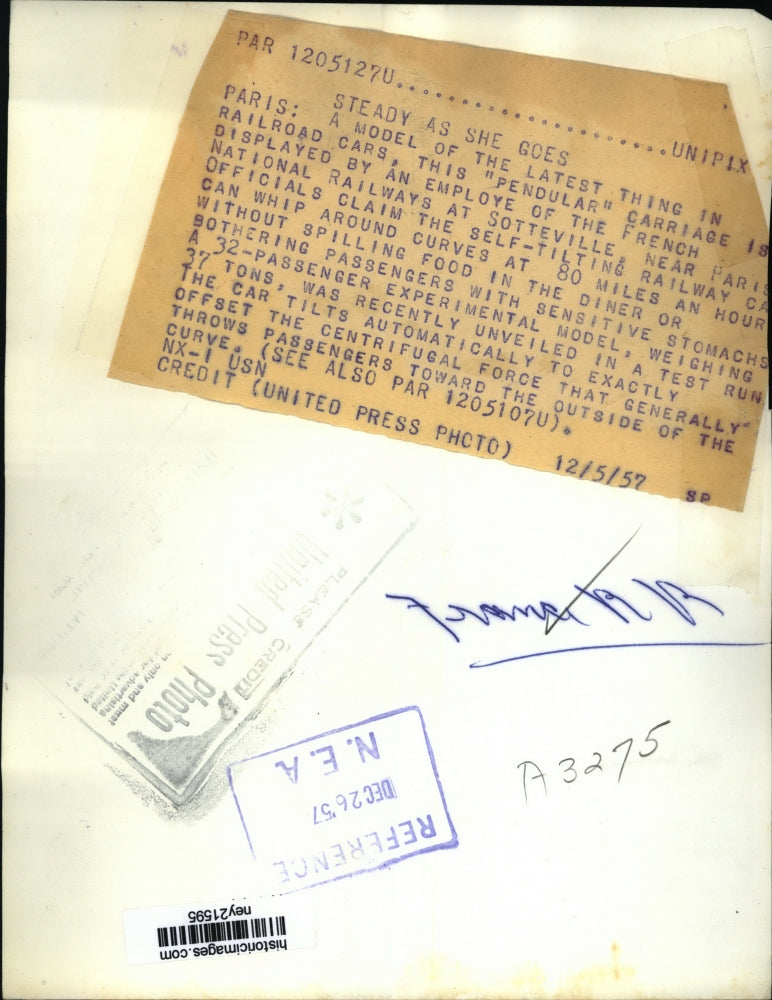 PAR 1205127U...........................UNIPIX
PARIS: STEADY AS SHE GOES
A MODEL OF THE LATEST THING IN
RAILROAD CARS, THIS "PENDULAR" CARRIAGE IS
DISPLAYED BY AN EMPLOYE OF THE FRENCH
NATIONAL RAILWAYS AT SOTTEVILLE, NEAR PARIS
OFFICIALS CLAIM THE SELF-TILTING RAILWAY CA
CAN WHIP AROUND CURVES AT 80 MILES AN HOUR
WITHOUT SPILLING FOOD IN THE DINER OR
BOTHERING PASSENGERS WITH SENSITIVE STOMACHS
A 32-PASSENGER EXPERIMENTAL MODEL, WEIGHING
37 TONS, WAS RECENTLY UNVEILED IN A TEST RUN
THE CAR TILTS AUTOMATICALLY TO EXACTLY
OFFSET THE CENTRIFUGAL FORCE THAT GENERALLY
THROWS PASSENGERS TOWARD THE OUTSIDE OF THE
CURVE. (SEE ALSO PAR 1205107U).
NX-1 USN
CREDIT (UNITED PRESS PHOTO) 12/5/57 SP
PLEASE CREDIT
United Press Photo
A3275
N.E.A
DEC 26 '57
REFERENCE
historicimages.com
ney21595